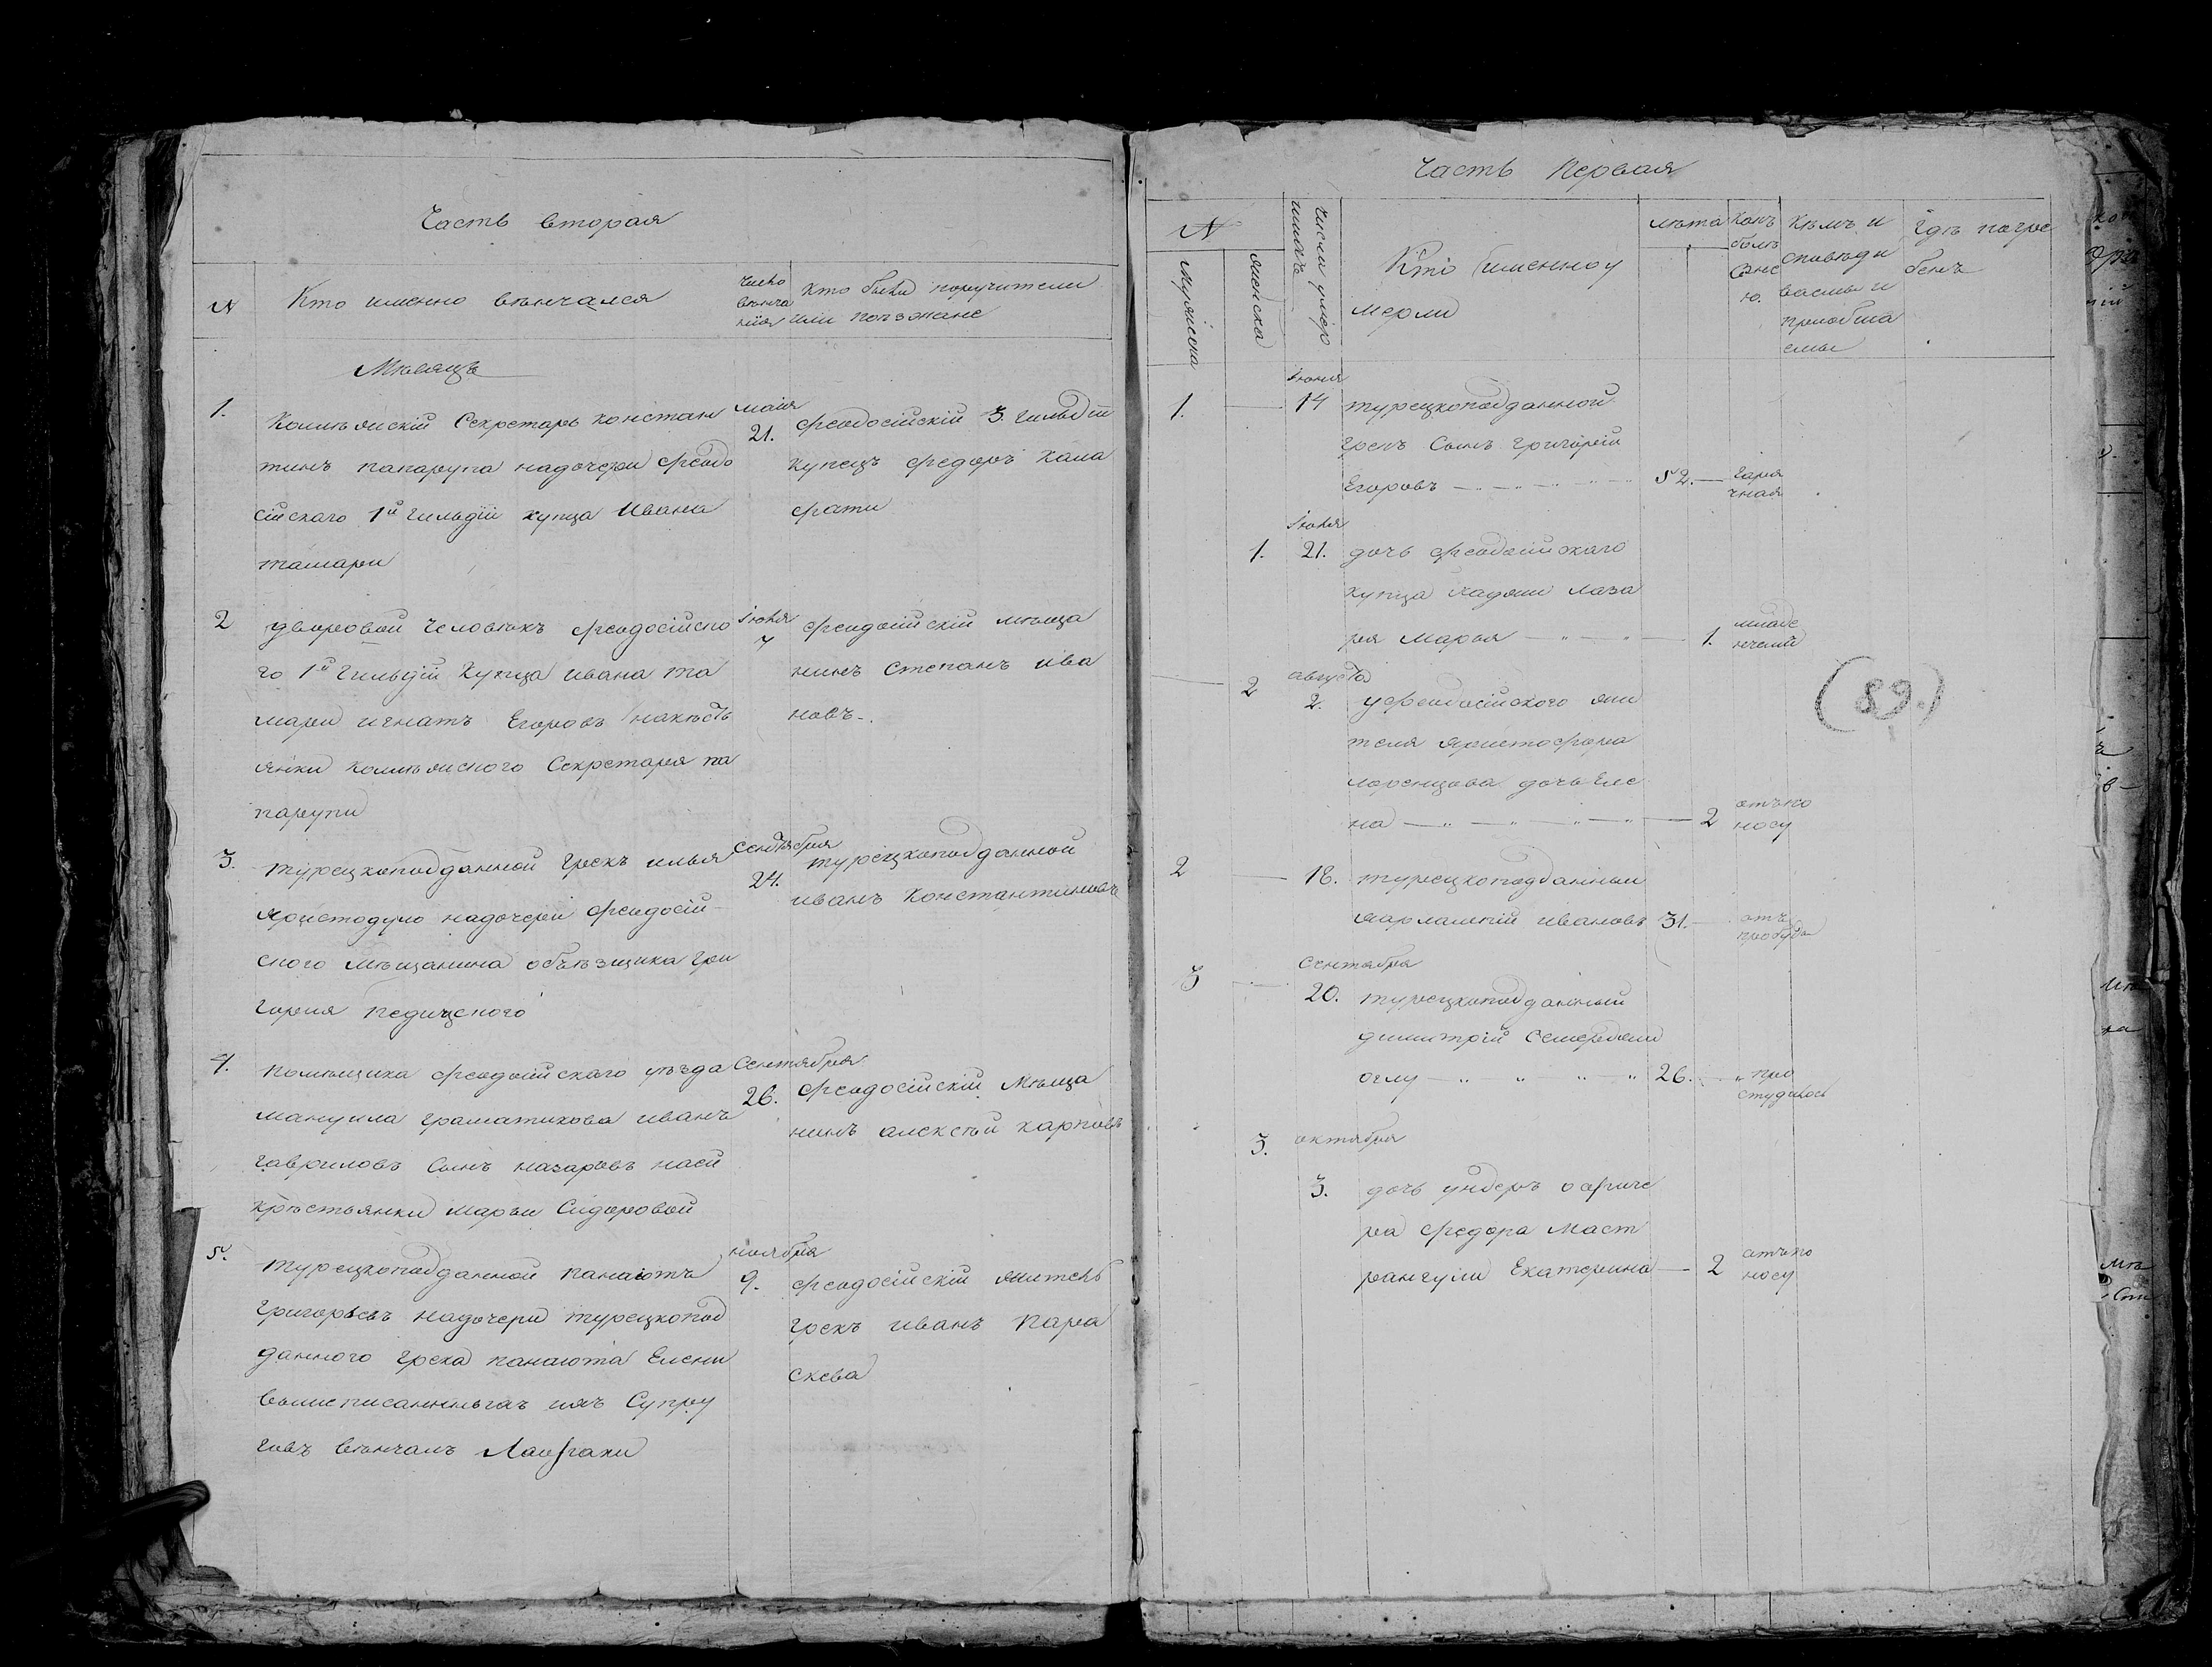 Часть вторая
№
Кто именно вѣнчался
Число
вѣнча
нїя
Кто были поручители
или поѣзжане
Мѣсяцъ
1.
Колѣжскій Секретарь констан
тинъ папарупа надочери феодо
сійскаго 1й гильдїи купца Ивана
тамари
маія
21.
феодосійскій 3. гильдїи
купецъ федоръ кала
фати
2
дворовой человѣкъ феодосійско
го 1й гильдїи купца ивана та
мари игнатъ Егоровъ накрѣсть
янки колѣжского Секретаря па
парупи
Іюня
7
феодосійскій мѣща
нинъ степанъ ива
новъ
3.
турецкоподданной грекъ илья
христодуло надочери феодосій
ского мѣщанина объѣзщика гри
гория
Сентября
24.
турецкоподданной
иванъ константиновъ
4.
помѣщика феодосійскаго уѣзда
мануила граматикова иванъ
гавриловъ сынъ назаровъ
крѣстьянки марьи Сидоровой
Сентября
26.
феодосійскій мѣща
нинъ алексѣй карповъ
5.
турецкоподданной панаіотъ
григорьевъ надочери турецкопод
данного грека панаіота Елени
вышеписанныхъ ихъ Супру
говъ вѣнчалъ
ноября
9.
феодосійскій житель
грекъ иванъ пара
скева
Часть Первая
№
Мужеска
женска
Числа умер
шихъ
Кто именно у
мерли
лѣта
Какъ
болѣ
знїе
ю.
Кѣмъ и
сповѣды
ваемы и
приобща
емы
Гдѣ погре
бенъ
1.
Іюня
14
турецкоподданной
грекъ Сынъ григорїи
Егоровъ
52.
Горя
чная
1.
Іюня
21.
дочь феодосійскаго
купца хаджи лаза
ря Марья
1.
младе
нчекой
2
августа
2.
уфеодосійского жи
теля христофора
лоренцова дочь Еле
на
2
отъпо
носу
2
18.
турецкоподданныи
харлампїй ивановъ
31.
отъ
3
Сентября
20.
турецкоподданный
димитрїй
оглу
26.
про
студилсь
3.
октября
3.
дочь ундеръ офице
ра федора маст
рангули Екатерина
2
отъпо
носу
(89.)